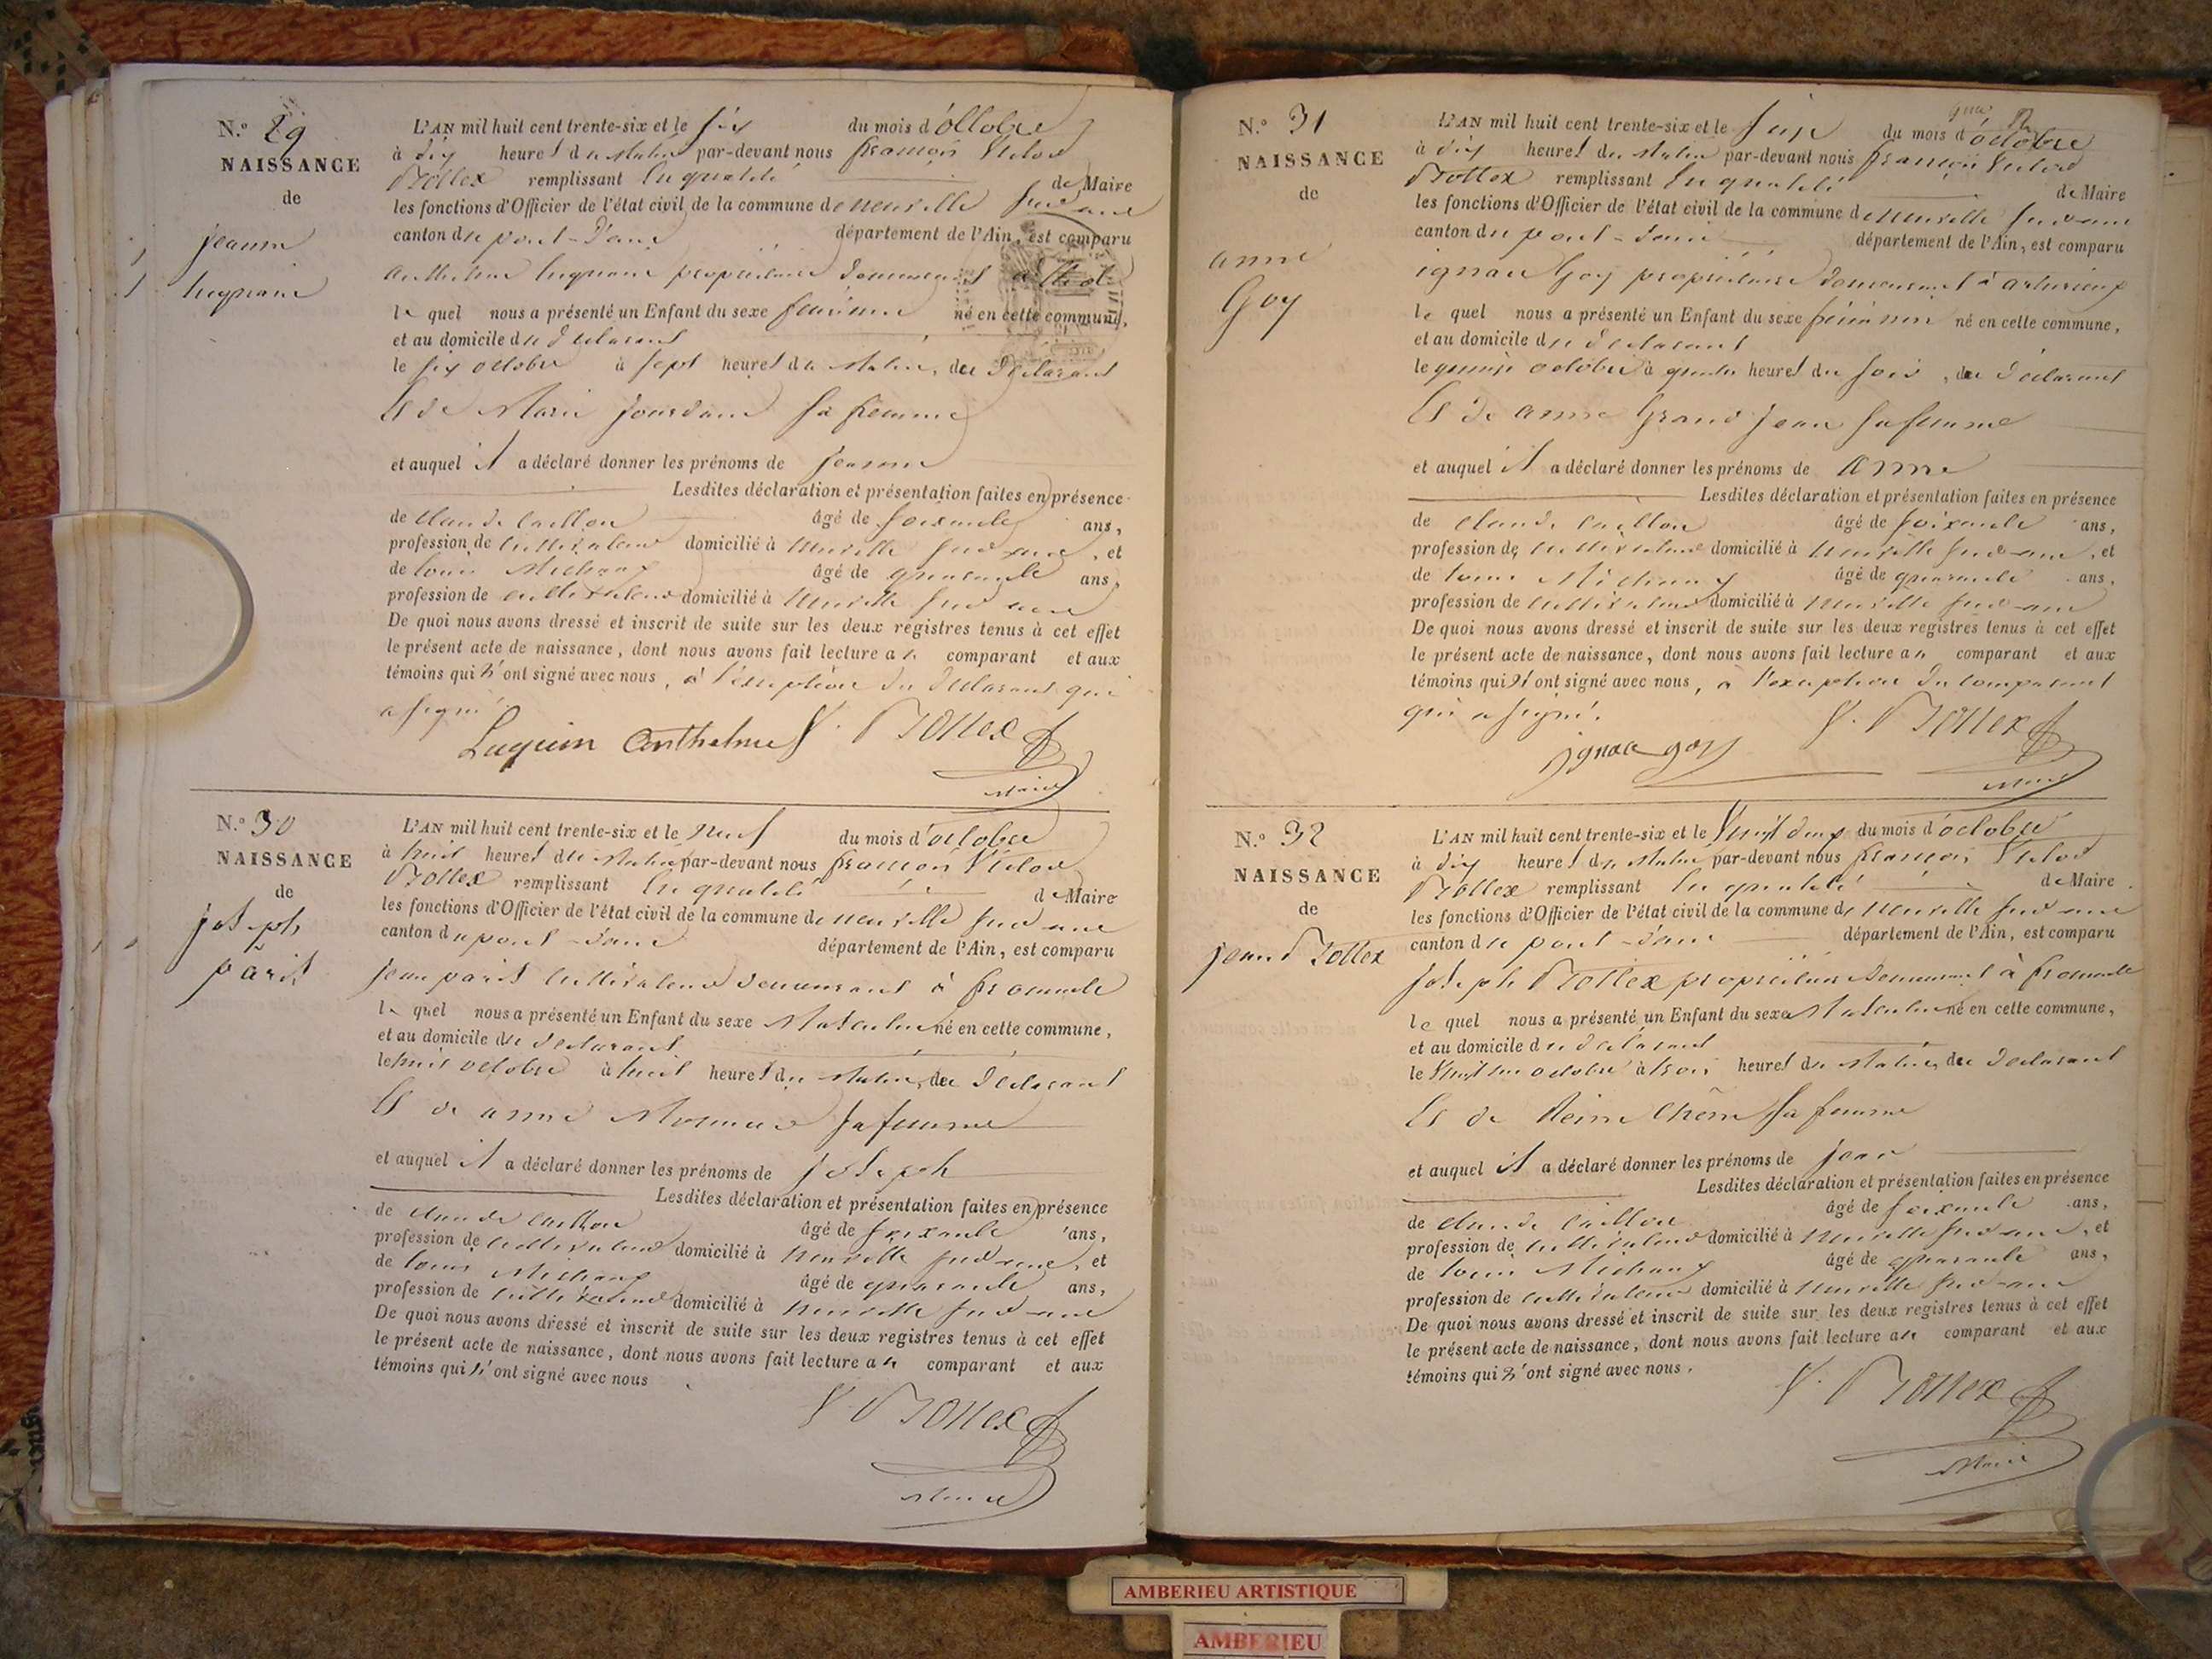 N.° 29
NAISSANCE
de
jeanne
luquain
L'AN mil huit cent trente-six et le six du mois d'octobre
à dix heures du matin par-devant nous françois Victor
Bottex remplissant En qualité de Maire
les fonctions d'Officier de l'état civil de la commune de neuville sur ain
canton du pont-d'ain département de l'Ain, est comparu
anthelme luquain propriétaire demeurant à
le quel nous a présenté un Enfant du sexe féminin né en cette commune,
et au domicile du déclarant
le six octobre à sept heures du matin, du Déclarant
Et de Marie jourdain sa femme
et auquel il a déclaré donner les prénoms de jeanne
Lesdites déclaration et présentation faites en présence
de claude caillon âgé de soixante ans,
profession de cultivateur domicilié à neuville sur ain, et
de louis Michaux âgé de quarante ans,
profession de cultivateur domicilié à neuville sur ain
De quoi nous avons dressé et inscrit de suite sur les deux registres tenus à cet effet
le présent acte de naissance, dont nous avons fait lecture au comparant et aux
témoins qui n'ont signé avec nous, à l'exception du Déclarant qui
a signé
Luquin Anthelme V. Bottex
Maire
N.° 30
NAISSANCE
de
joseph
paris
L'AN mil huit cent trente-six et le neuf du mois d'octobre
à huit heures du matin par-devant nous françois Victor
Bottex remplissant En qualité de Maire
les fonctions d'Officier de l'état civil de la commune de neuville sur ain
canton du pont-d'ain département de l'Ain, est comparu
jean paris cultivateur demeurant à fromente
le quel nous a présenté un Enfant du sexe Masculin né en cette commune,
et au domicile du declarant
le huit octobre à huit heures du matin, du Déclarant
Et de anne sa femme
et auquel il a déclaré donner les prénoms de joseph
Lesdites déclaration et présentation faites en présence
de claude caillon âgé de soixante ans,
profession de cultivateur domicilié à neuville sur ain, et
de louis Michaux âgé de quarante ans,
profession de cultivateur domicilié à neuville sur ain
De quoi nous avons dressé et inscrit de suite sur les deux registres tenus à cet effet
le présent acte de naissance, dont nous avons fait lecture au comparant et aux
témoins qui n'ont signé avec nous
V. Bottex
Maire
N.° 31
NAISSANCE
de
anne
Goy
L'AN mil huit cent trente-six et le seize du mois d'octobre
à dix heures du matin par-devant nous françois Victor
Bottex remplissant En qualité de Maire
les fonctions d'Officier de l'état civil de la commune de neuville sur ain
canton du pont-d'ain département de l'Ain, est comparu
ignace Goy propriétaire demeurant à
le quel nous a présenté un Enfant du sexe féminin né en cette commune,
et au domicile du declarant
le quinze octobre à quatre heures du soir, du déclarant
Et de anne Grand jean sa femme
et auquel il a déclaré donner les prénoms de anne
Lesdites déclaration et présentation faites en présence
de claude caillon âgé de soixante ans,
profession de cultivateur domicilié à neuville sur ain, et
de louis Michaux âgé de quarante ans,
profession de cultivateur domicilié à neuville sur ain
De quoi nous avons dressé et inscrit de suite sur les deux registres tenus à cet effet
le présent acte de naissance, dont nous avons fait lecture au comparant et aux
témoins qui n'ont signé avec nous, à l'exception du comparant
qui a signé.
ignace goy V. Bottex
Maire
N.° 32
NAISSANCE
de
jean Bottex
L'AN mil huit cent trente-six et le Vingt deux du mois d'octobre
à dix heures du matin par-devant nous françois Victor
Bottex remplissant En qualité de Maire
les fonctions d'Officier de l'état civil de la commune de neuville sur ain
canton du pont-d'ain département de l'Ain, est comparu
joseph Bottex propriétaire demeurant à fromente
le quel nous a présenté un Enfant du sexe Masculin né en cette commune,
et au domicile du déclarant
le octobre à trois heures du matin, du Déclarant
Et de Reine chêne sa femme
et auquel il a déclaré donner les prénoms de jean
Lesdites déclaration et présentation faites en présence
de claude caillon âgé de soixante ans,
profession de cultivateur domicilié à neuville sur ain, et
de louis Michaux âgé de quarante ans,
profession de cultivateur domicilié à neuville sur ain
De quoi nous avons dressé et inscrit de suite sur les deux registres tenus à cet effet
le présent acte de naissance, dont nous avons fait lecture au comparant et aux
témoins qui n'ont signé avec nous.
V. Bottex
Maire
AMBERIEU ARTISTIQUE
AMBERIEU